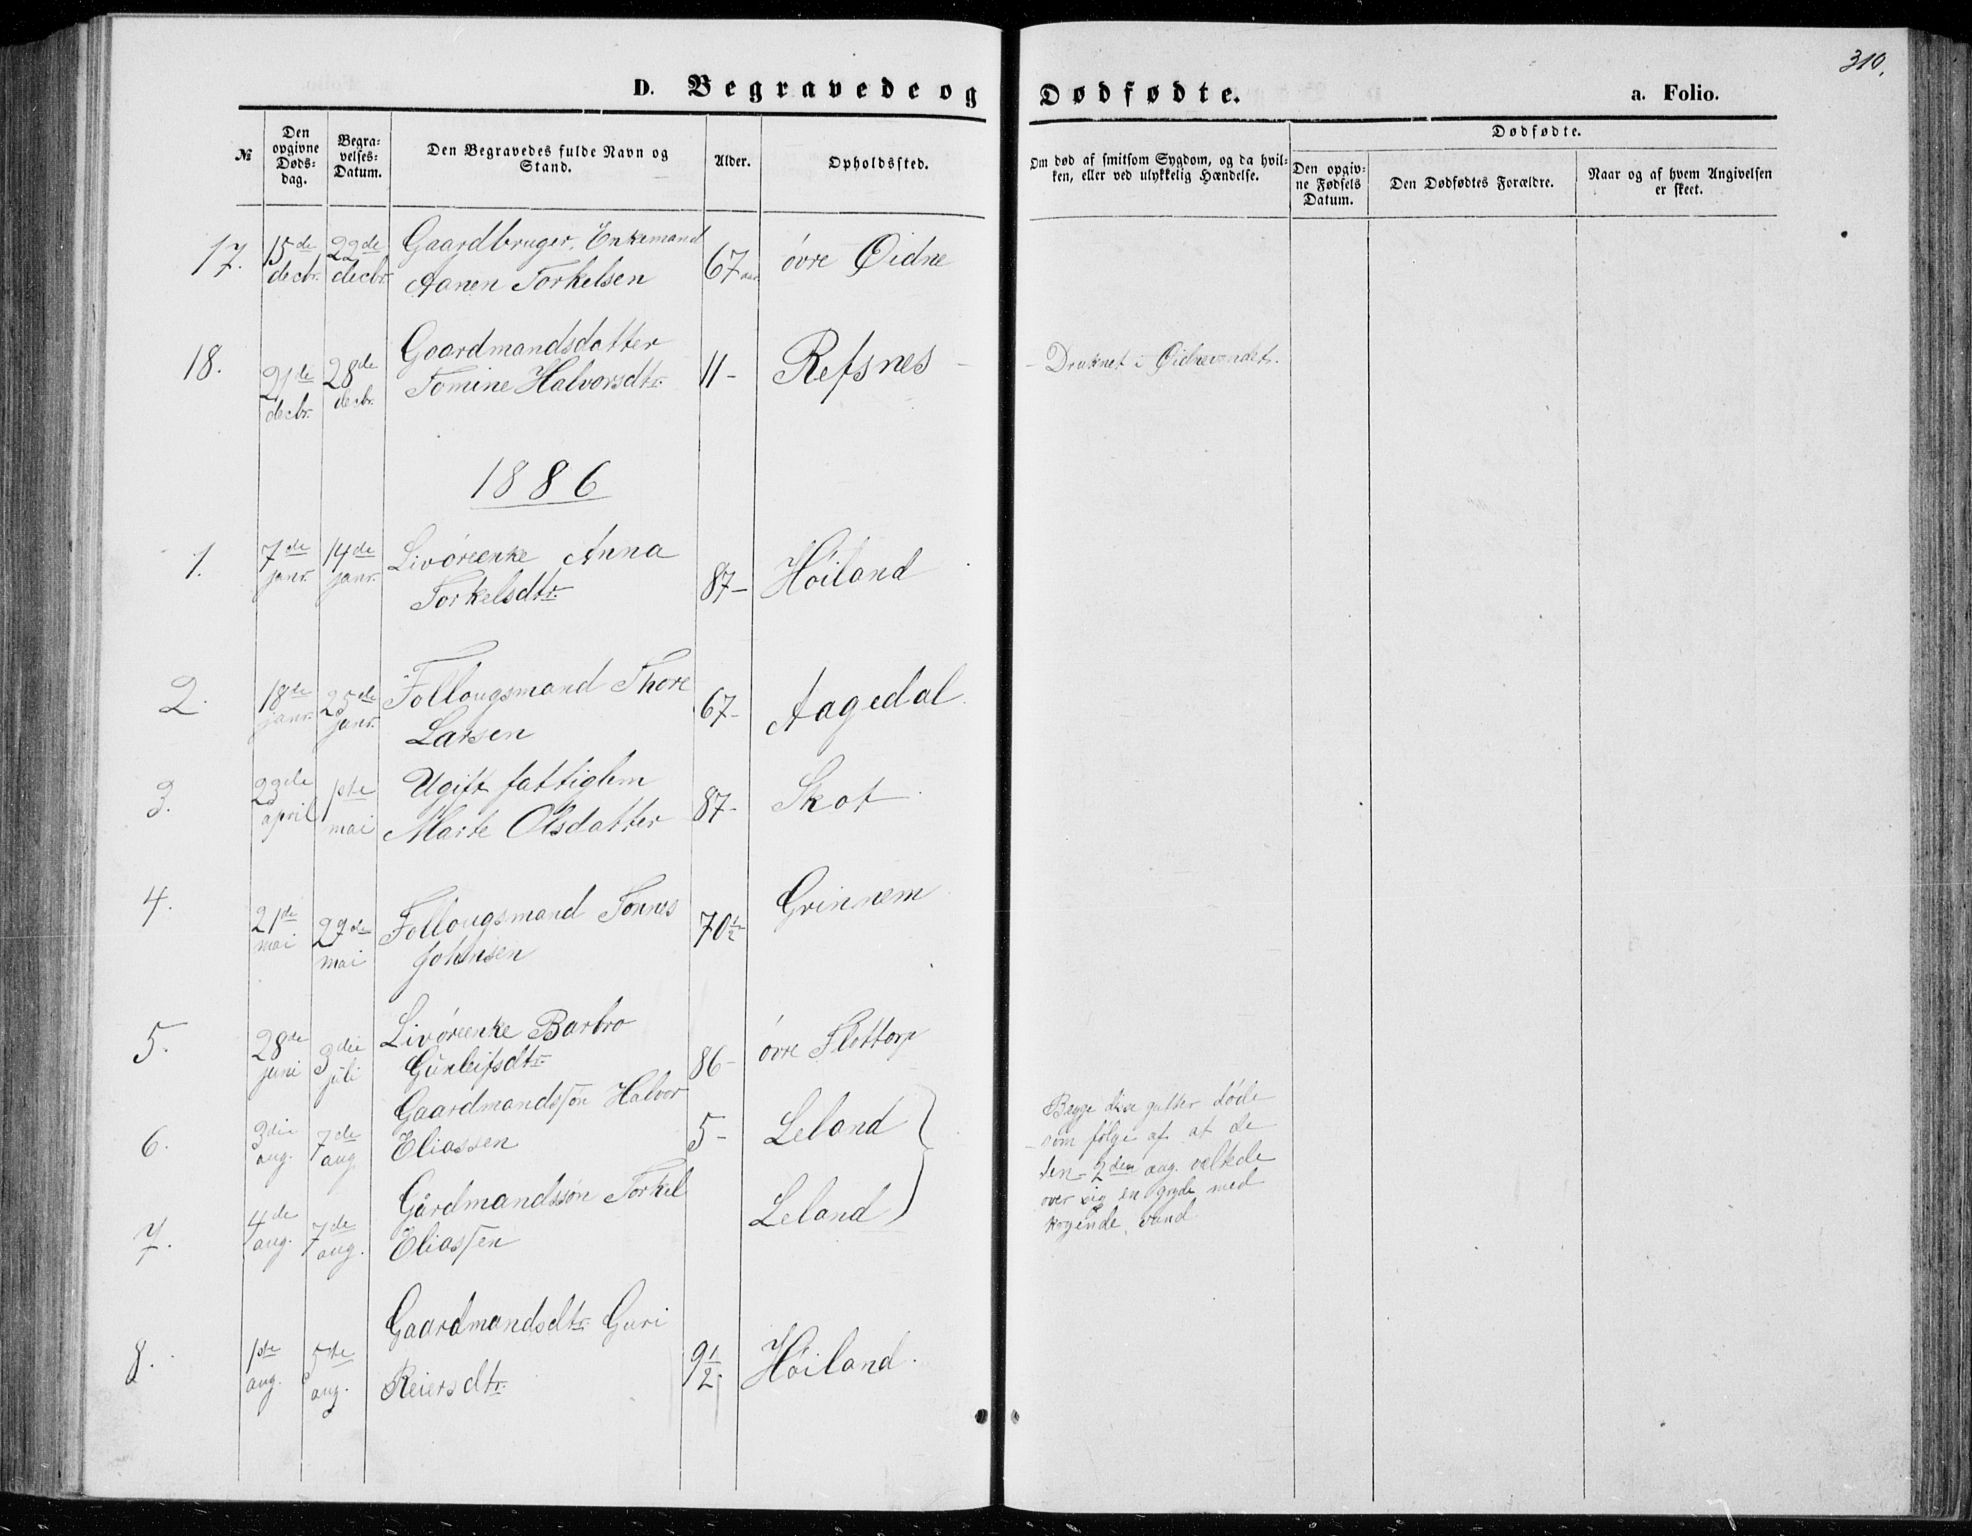 310.
D. Begravede og Dødfødte. a. Folio.
№ Den opgivne Døds-dag. Begra-velses-Datum. Den Begravedes fulde Navn og Stand. Alder. Opholdssted. Om død af smitsom Sygdom, og da hvil-ken, eller ved ulykkelig Hændelse. Dødfødte.
Den opgiv-ne Fødsels Datum. Den Dødfødtes Forældre. Naar og af hvem Angivelsen er skeet.
17. 15de decbr. 22de decbr. Gaardbruger, Enkemand
Aanen Torkelsen 67 aar øvre Øidne
18. 21de decbr. 28de decbr. Gaardmandsdatter
Tomine Halvorsdtr. 11 - Refsnes - - Druknet i Øidnevandet.
1886
1. 7de janr. 14de janr. Livøreenke Anna
Torkelsdtr. 87 - Høiland
2. 18de janr. 25de janr. Follougsmand Thore
Larsen 67 - Aagedal
3. 23de april 1ste mai Ugift fattiglem
Marte Olsdatter 87 - Skot
4. 21de mai 27de mai Follougsmand Tønnes
Johnsen 70½ Grinnem
5. 28de juni 3die juli Livøreenke Barbro
Gunleifsdtr. 86 - øvre Flottorp
6. 3die aug. 7de aug Gaardmandssøn Halvor
Eliassen 5 - Leland
Begge disse gutter døde
som følge af at de
den 2den aug. væltede
over sig en gryde med
kogende vand.
7. 4de aug. 7de aug. Gårdmandssøn Torkel
Eliassen Leland
8. 1ste aug. 5te aug. Gaardmandsdtr. Guri
Reiersdtr. 9½ Høiland.